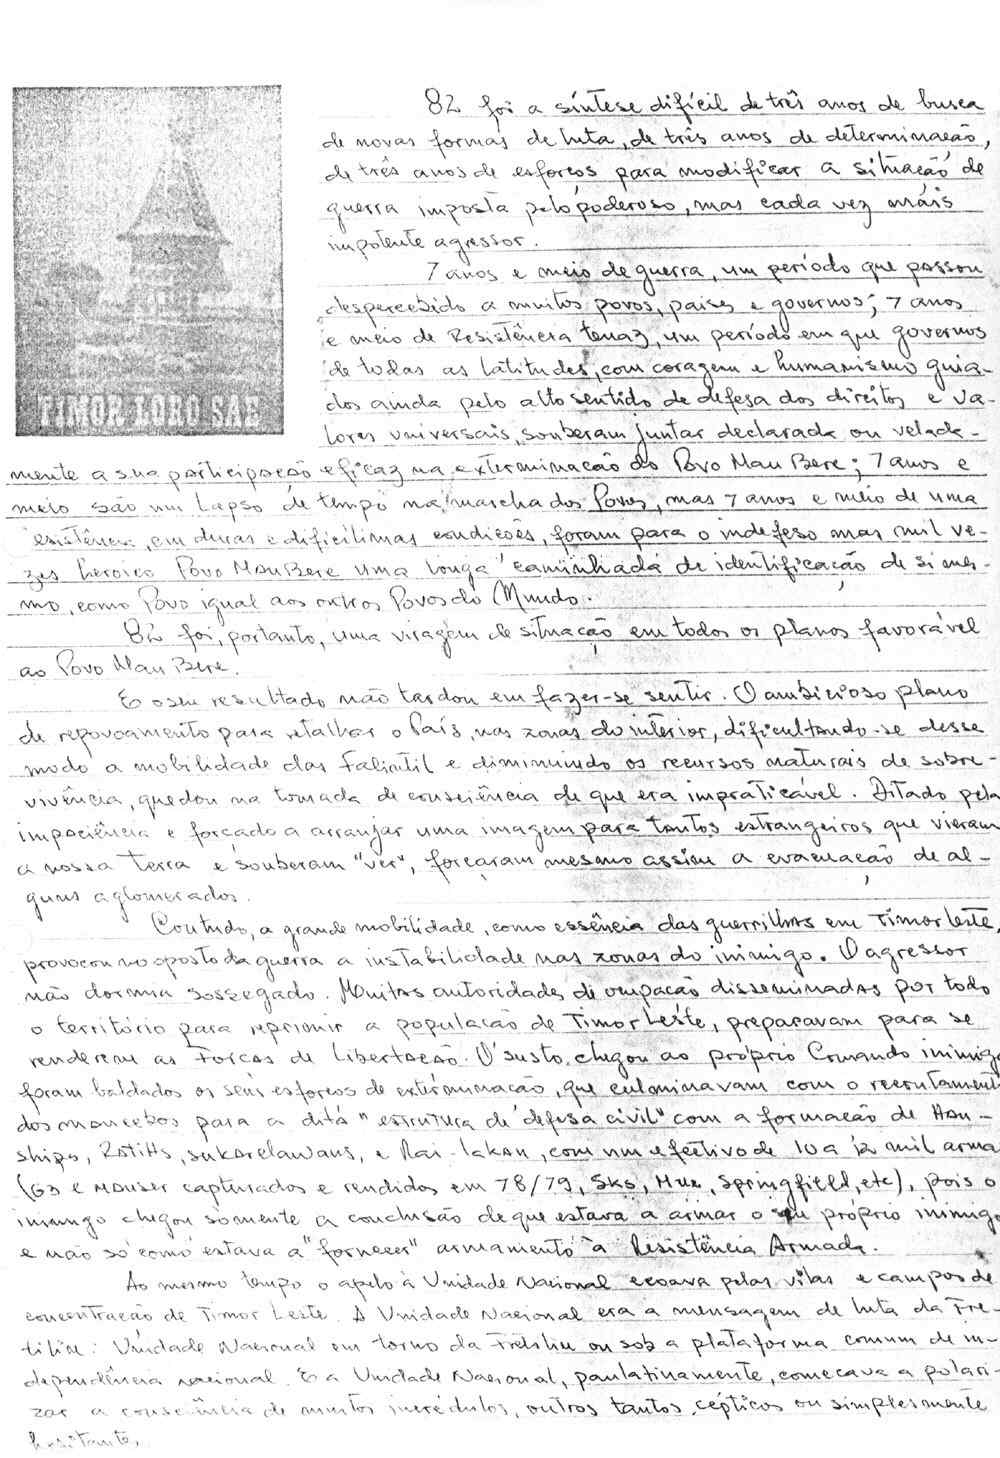 TIMOR LORO SAE
82 foi a síntese difícil de três anos de busca
de novas formas de luta, de três anos de determinação,
de três anos de esforços para modificar a situação de
guerra imposta pelo poderoso, mas cada vez máis
impotente agressor.
7 anos e meio de guerra, um período que passou
despercebido a muitos povos, países e governos; 7 anos
e meio de Resistência tenaz, um período em que governos
de todas as latitudes, com coragem e humanismo guia-
dos ainda pelo alto sentido de defesa dos direitos e va-
lores universais, souberam juntar declarada ou velada-
mente a sua participação eficaz na exterminação do Povo Mau Bere; 7 anos e
meio são um lapso de tempo na marcha dos Povos, mas 7 anos e meio de uma
existência, em duras e dificílimas condições, foram para o indefeso mas mil ve-
zes heroico Povo Mau Bere uma longa caminhada de identificação de si mes-
mo, como Povo igual aos outros Povos do Mundo.
82 foi, portanto, uma viragem de situação em todos os planos favorável
ao Povo Mau Bere.
E o seu resultado não tardou em fazer-se sentir. O ambicioso plano
de repovoamento para retalhar o País, nas zonas do interior, dificultando-se desse
modo a mobilidade das Falintil e diminuindo os recursos naturais de sobre-
vivência, quedou na tomada de consciência de que era impraticável. Ditado pela
impaciência e forçado a arranjar uma imagem para tantos estrangeiros que vieram
a nossa terra e souberam "ver", forçaram mesmo assim a evacuação de al-
guns aglomerados.
Contudo, a grande mobilidade, como essência das guerrilhas em Timor Leste,
provocou no oposto da guerra a instabilidade nas zonas do inimigo. O agressor
não dormia sossegado. Muitas autoridades de ocupação disseminadas por todo
o território para reprimir a população de Timor Leste, preparavam para se
renderem as Forças de Libertação. O susto chegou ao próprio Comando inimigo
foram baldados os seus esforços de exterminação, que culminavam com o recrutament
dos mancebos para a dita "estrutura de defesa civil" com a formação de Han-
ships, Ratihs, sukarelawans, e Rai-lakan, com um efectivo de 10 a 12 mil arma
(G3 e Mauser capturados e rendidos em 78/79, Sks, Springfield, etc), pois o
inimigo chegou somente a conclusão de que estava a armar o seu próprio inimigo
e não só como estava a "fornecer" armamento à Resistência Armada.
Ao mesmo tempo o apelo à Unidade Nacional ecoava pelas vilas e campos de
concentração de Timor Leste. A Unidade Nacional era a mensagem de luta da Fre-
tilin: Unidade Nacional em torno da Fretilin ou sob a plataforma comum de in-
dependência nacional. E a Unidade Nacional, paulatinamente, começava a polari-
zar a consciência de muitos incrédulos, outros tantos cépticos ou simplesmente
hesitante.